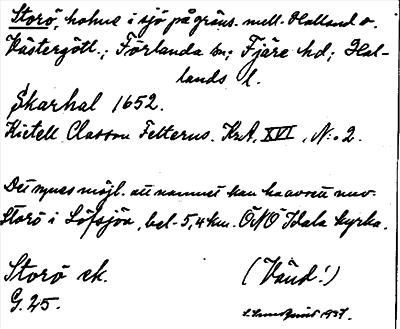 Storö, holme i sjö på gräns. mell. Halland o.
Västergötl.; Förlanda sn; Fjäre hd; Hal-
lands l.
Skarhal 1652.
Kietell Classon Felterus. KrA, XVI, N:o 2.
Det synes möjl. att namnet kan ha avsett nuv.
Storö i Löfsjön, bel. 5,4 km. ÖNÖ Idala kyrka.
Storö ek. (Vänd!)
G. 25. 1937.